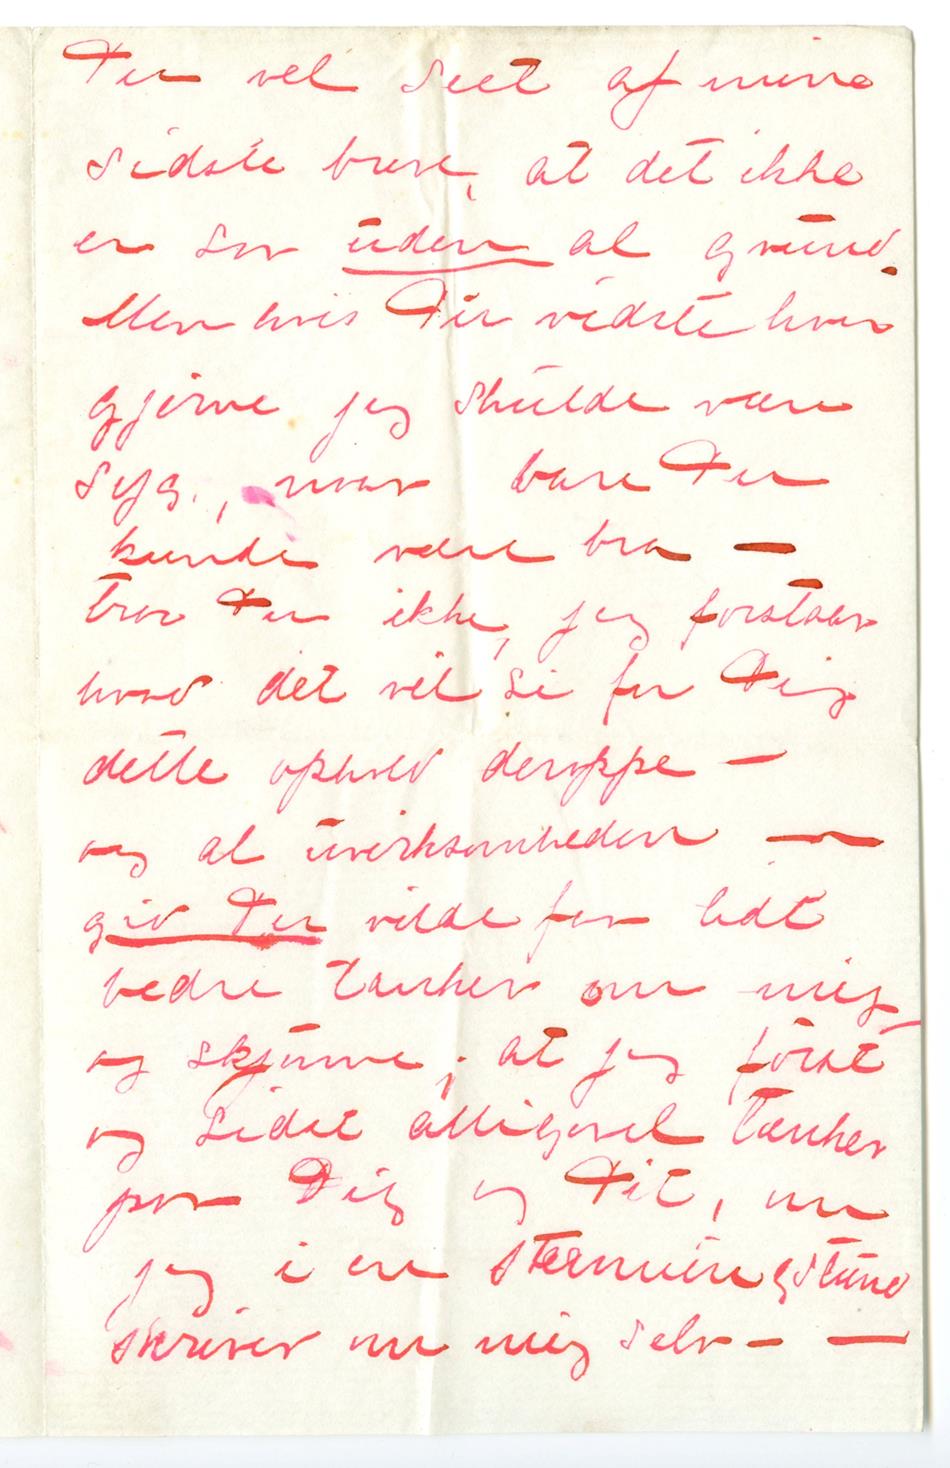 Du vel seet af mine
sidste breve, at det ikke
er saa uden al grund.
Men hvis Du vidste hvor
gjerne jeg skulde være
syg, naar bare Du
kunde være bra —
tror Du ikke, jeg forstaar
hvad det vil si for Dig
dette ophold deroppe —
og al uvirksomheden —
gid Du vilde faa lidt
bedre tanker om mig
og skjønne, at jeg først
og sidst alligevel tænker
paa Dig og Dit, om
jeg i en stemningsstund
skriver om mig selv — —